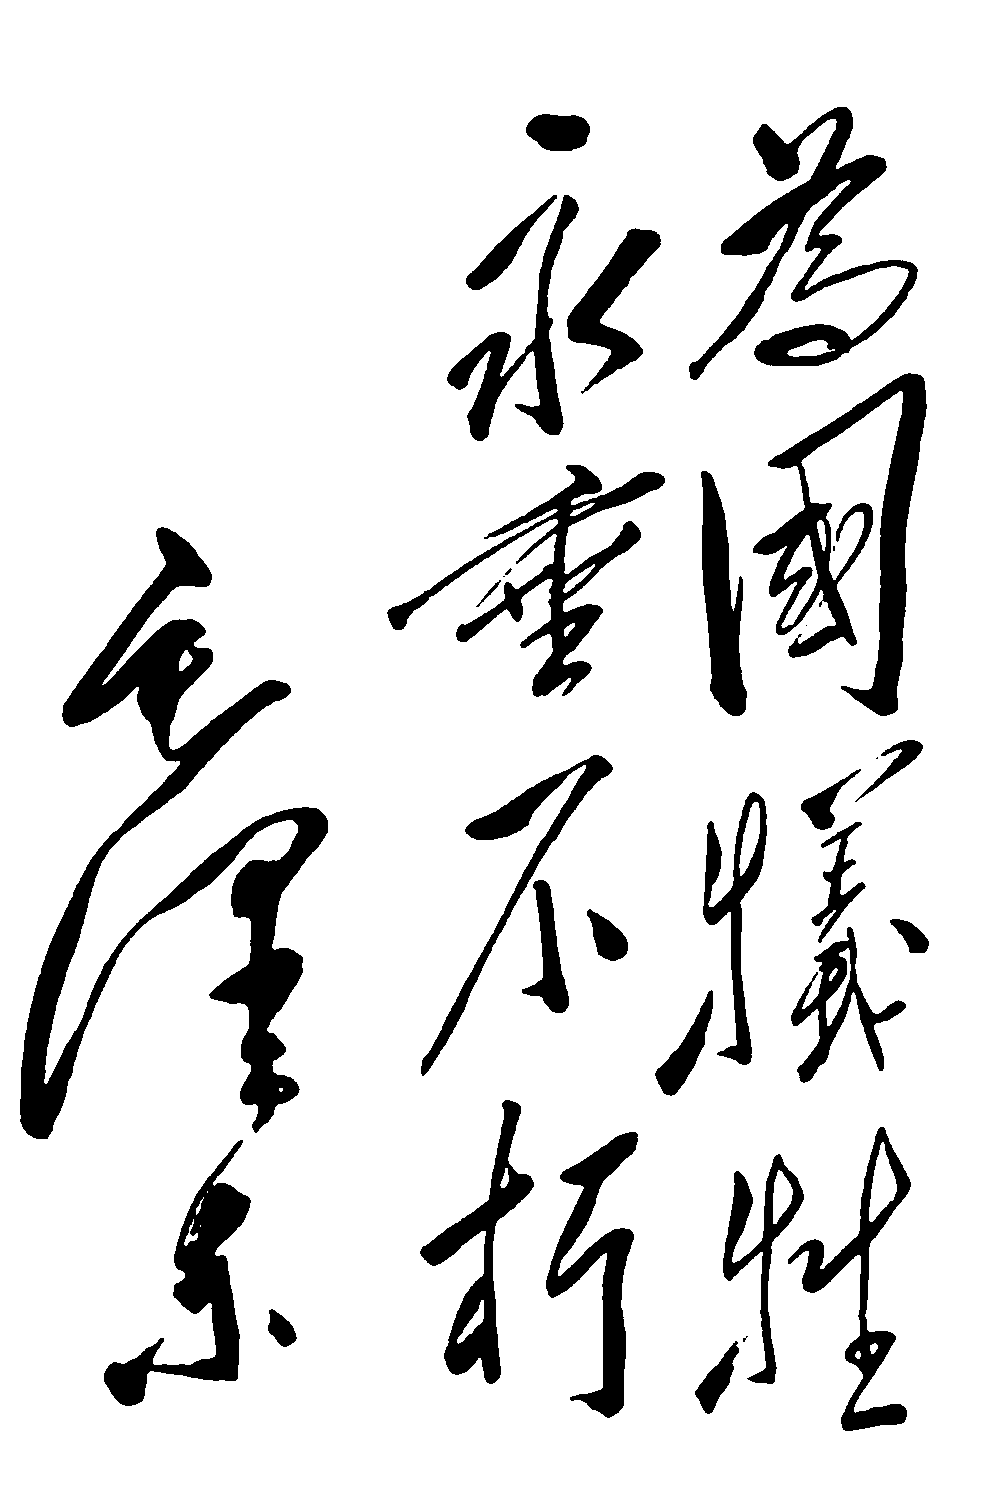 為國犧牲
永垂不朽
毛澤東